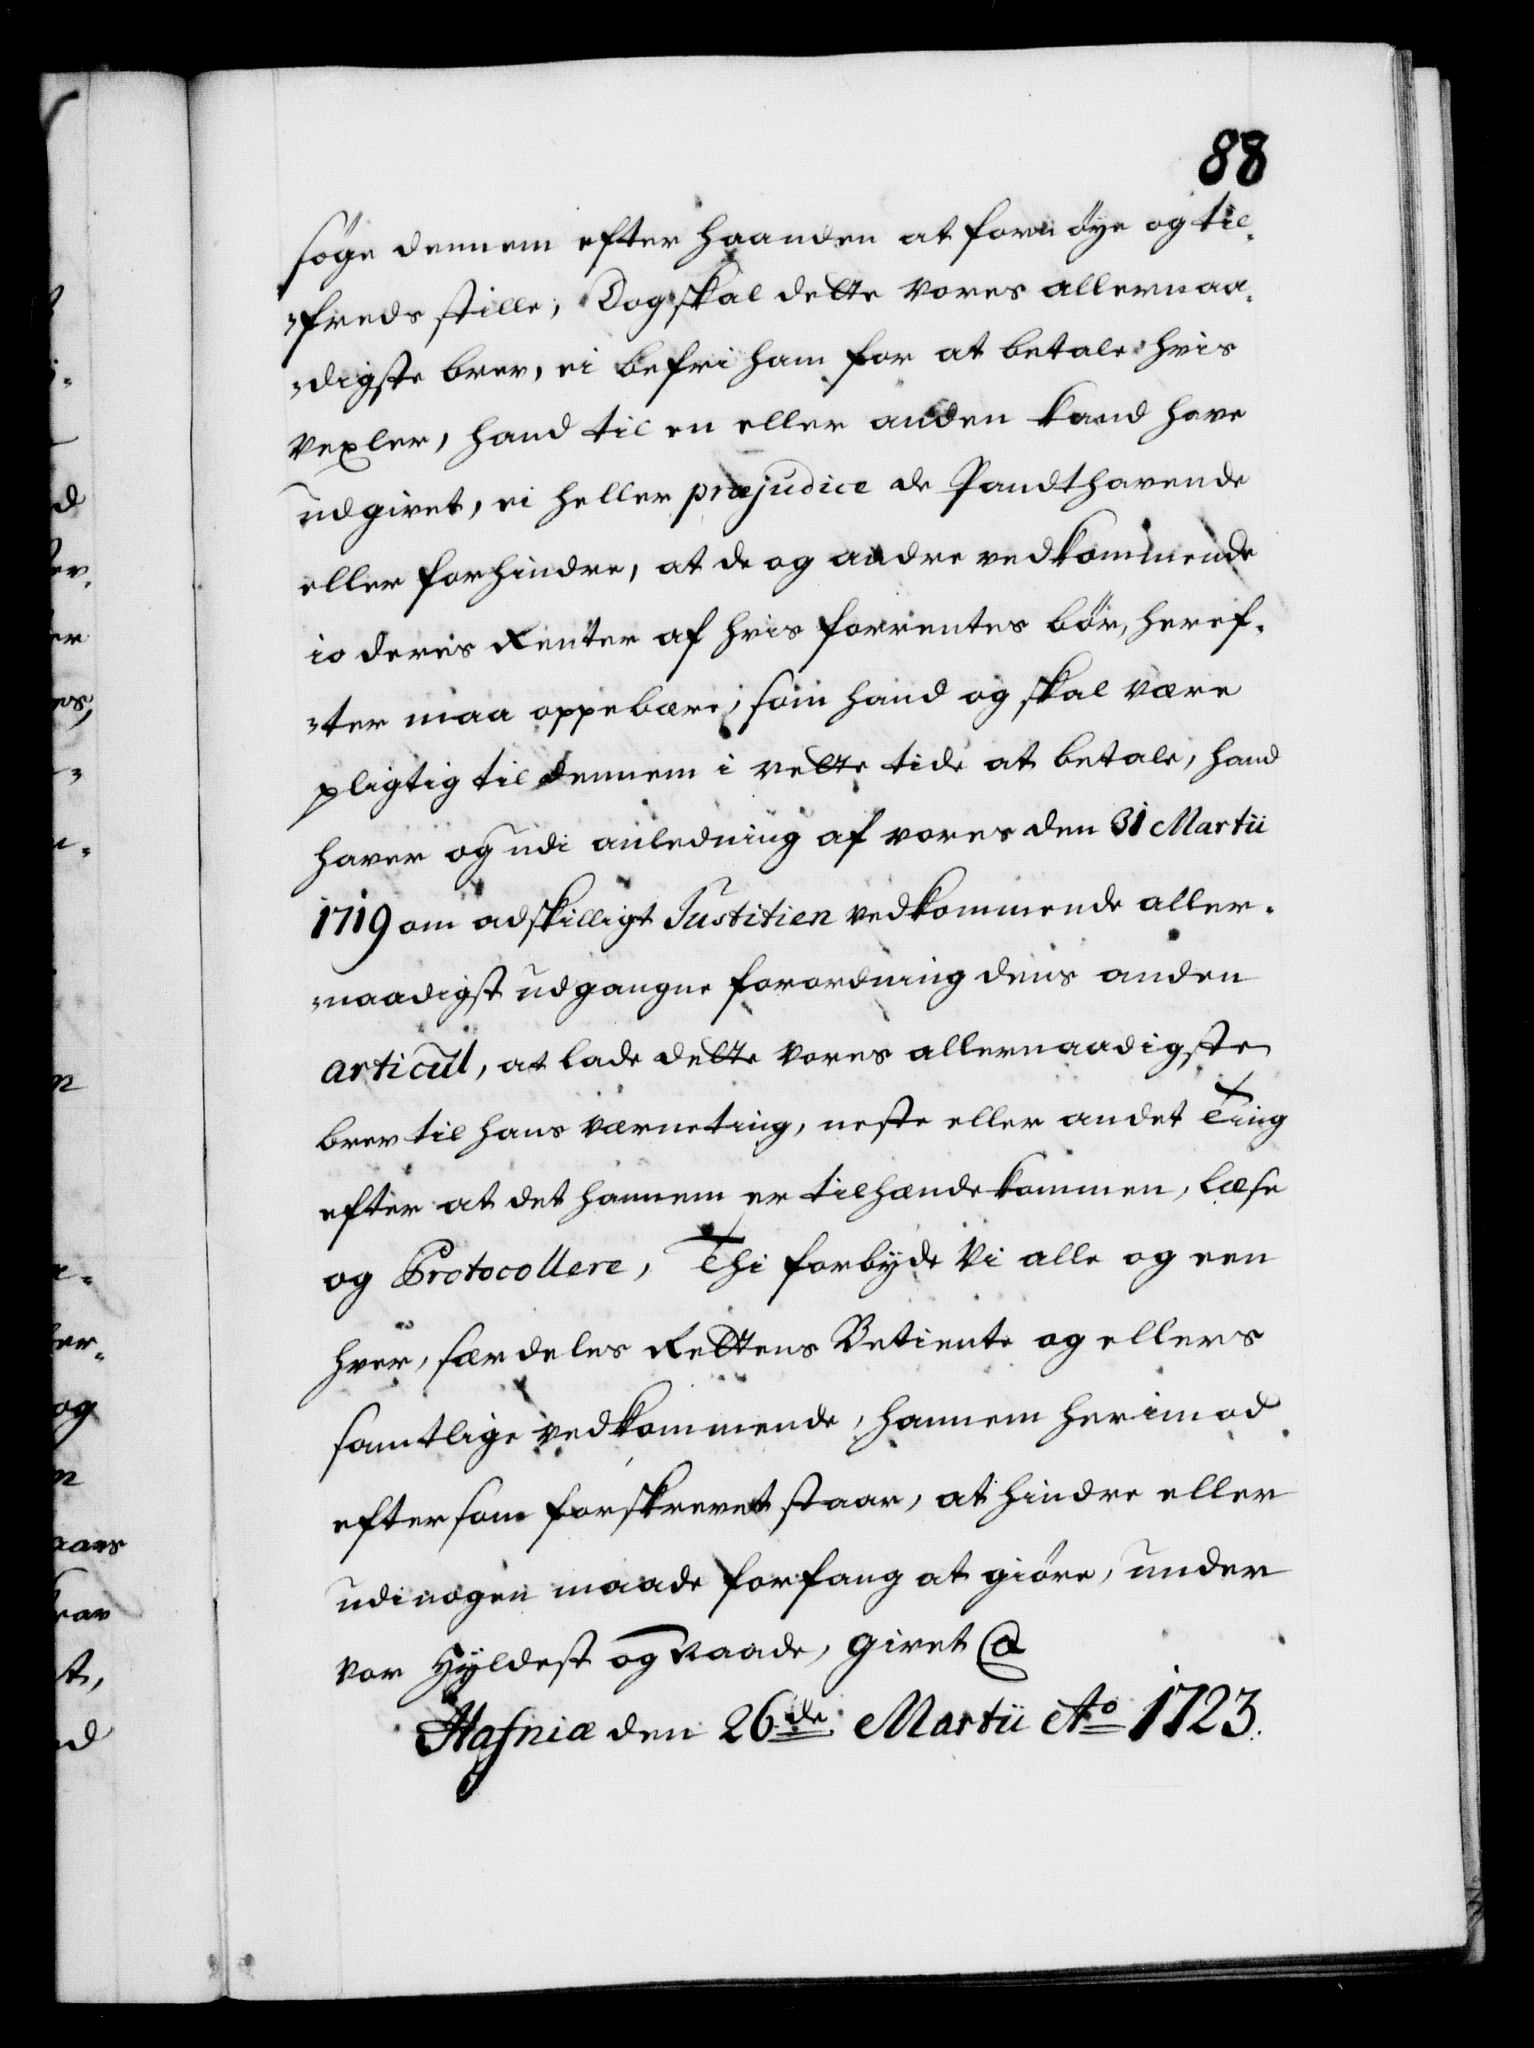 88
søge dennem efter haanden at fornøye og til-
-freds stille, Dog skal dette vores allernaa-
-digste brev, ei befri ham for at betale hvis
vexler, hand til en eller anden kand have
udgivet, ei heller præjudice de Pandthavende
eller forhindre, at de og andre vedkommende
io deris Renter af hvis forrentes bør, heref-
-ter maa oppebære, som hand og skal være
pligtig til dennem i rette tide at betale, hand
haver og udi anledning af vores den 31 Martii
1719 om adskilligt Justitien vedkommende aller-
-naadigst udgangne forordning dens anden
articul, at lade dette vores allernaadigste
brev til hans værneting, neste eller andet Ting
efter at det hannem er tilhænde kommen, læse
og Protocollere, Thi forbyde Vi alle og een
hver, særdeles Rettens Betiente og ellers
samtlige vedkommende, hannem herimod
eftersom forskrevet staar, at hindre eller
udi nogen maade forfang at giøre, under
vor Hyldest og Naade, givet
Hafniæ den 26de Martii Ao 1723.